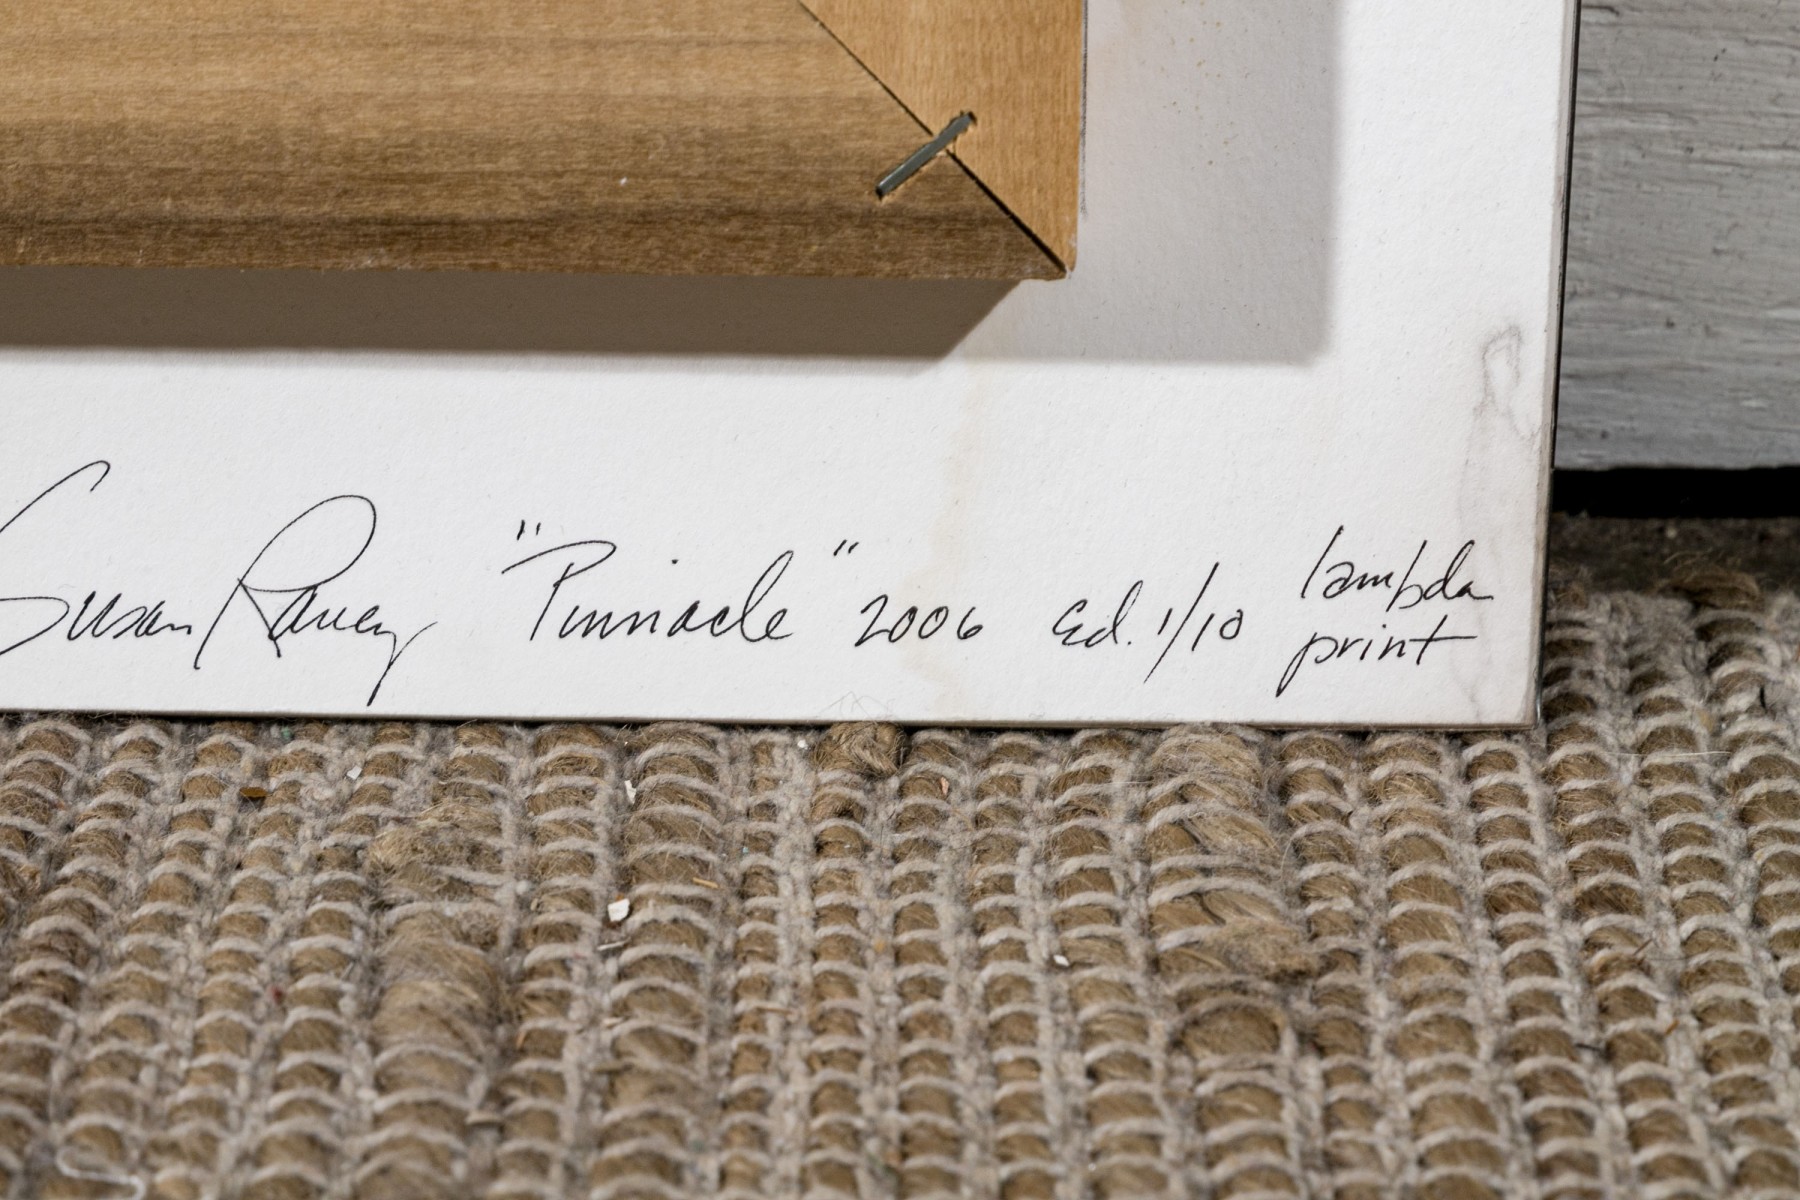 Susan Raney "Pinnacle" 2006 Ed. 1/10 lambda
print